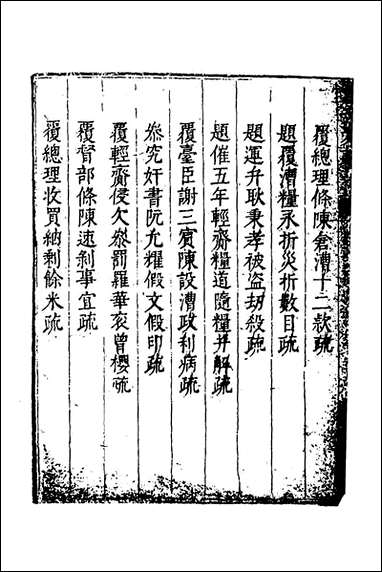 覆總理條陳倉漕十二款疏
題覆漕糧永折災折數目疏
題運弁耿秉孝被盜劫殺疏
題催五年輕齎糧道隨糧并解疏
覆臺臣謝三賓陳設漕政利病疏
叅究奸書阮允耀假文假印疏
覆輕齎侵欠叅罰羅華衮曾櫻疏
覆督部條陳速剝事宜疏
覆總理收買納剩餘米疏